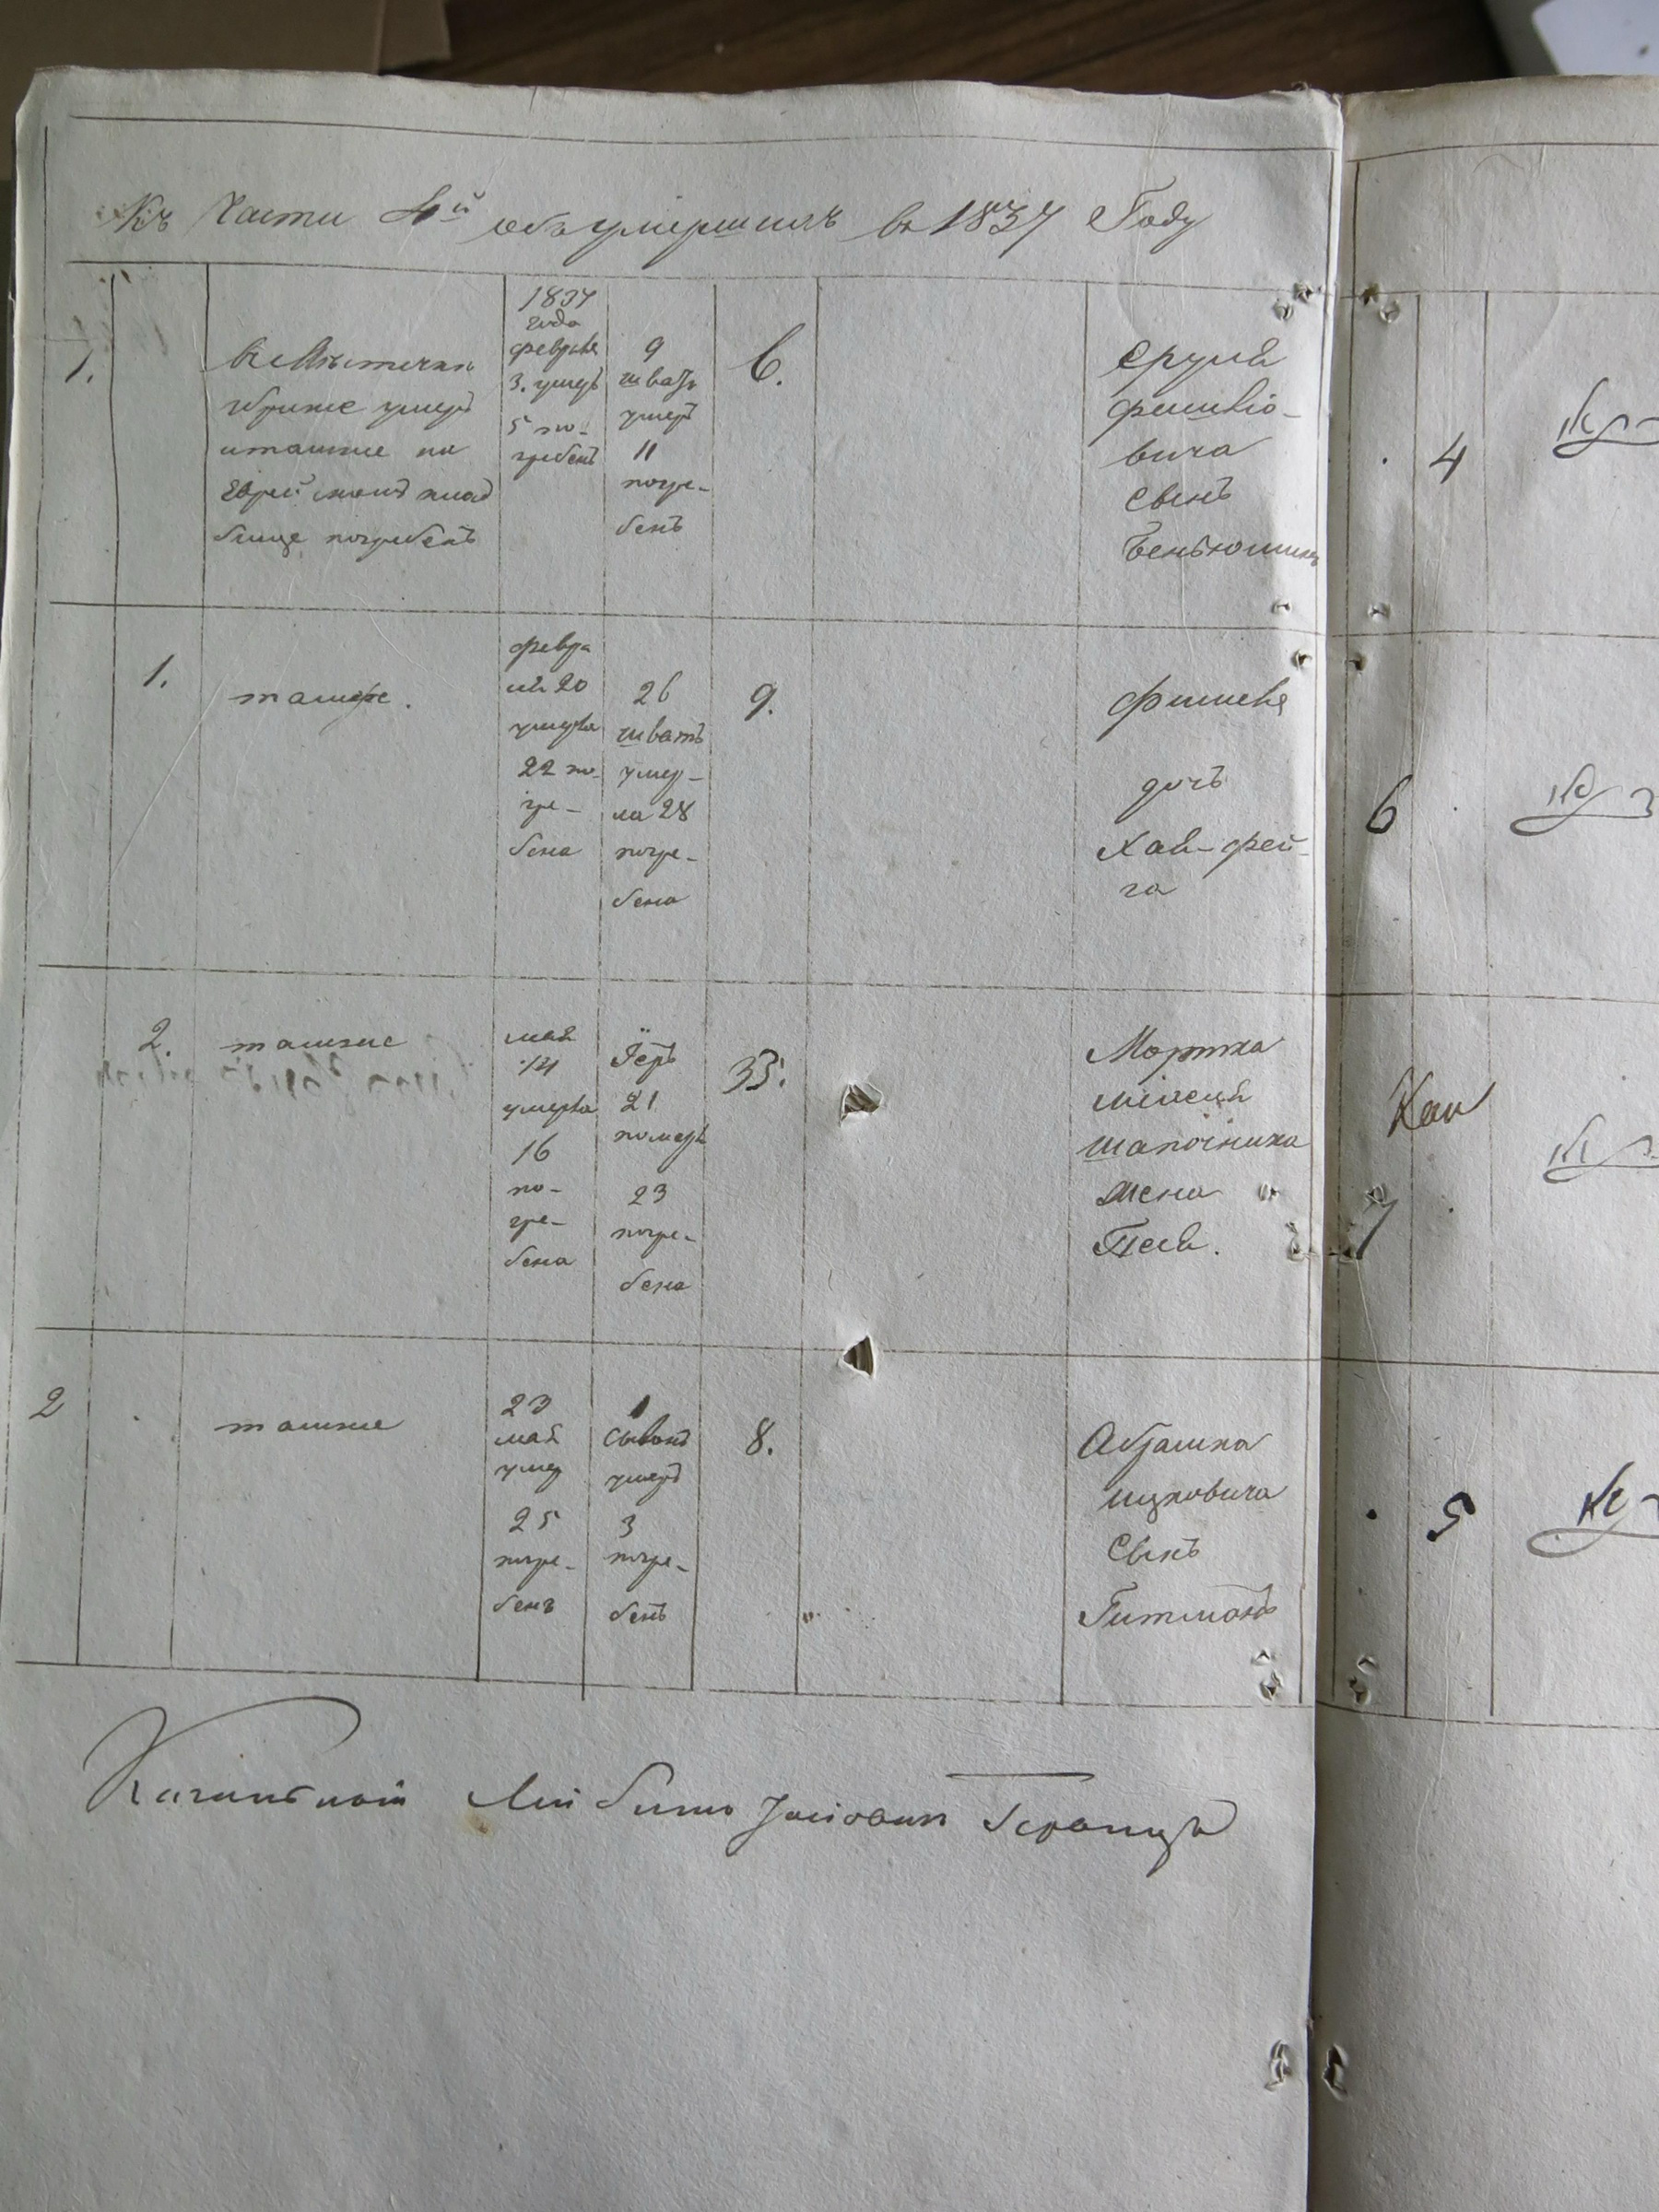 Къ Части 4й объ умершихъ въ 1837 Году
1.
въ Мѣстечки
умеръ
и тамже на
Еврейскомъ клад
бище погребенъ
1837
года
февраля
3. умеръ
5 по-
гребенъ
9
шватъ
умеръ
11
погре-
бенъ
6.
Сруля
Фишеліо-
вича
Сынъ
Беньюминъ
4
1.
тамже.
февра
ля 20
умерла
22 по-
гре-
бена
26
шватъ
умер-
ла 28
погре-
бена
9.
Фишеля
дочъ
Хая-фей-
га
6
2.
тамже
мая
14
умерла
16
по-
гре-
бена
Іеръ
21
померла
23
погре-
бена
35.
Мортка
шапочника
жена
Песя.
7
2
тамже
23
мая
умер
25
погре-
бенъ
1
Сиванъ
умеръ
3
погре-
бенъ
8.
Абрашка
ицковича
Сынъ
Гитманъ
5